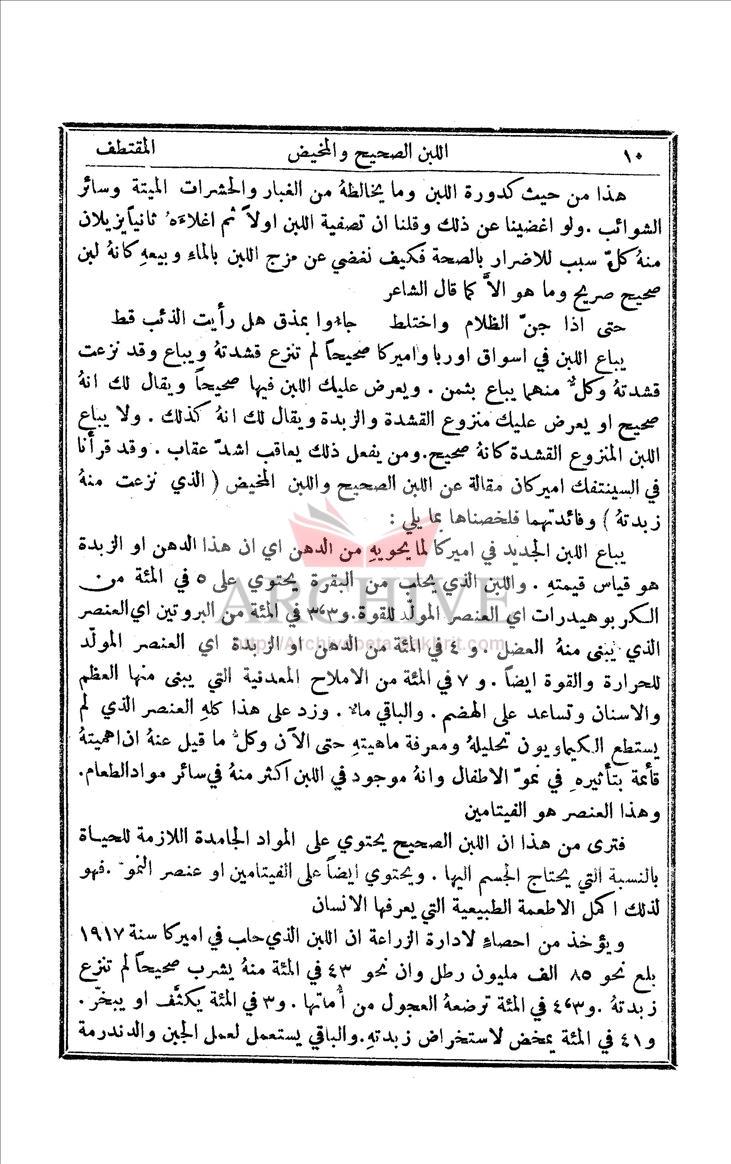 ١٠ اللبن الصحيح والمخيض المقتطف
هذا من حيث كدورة اللبن وما يخالطهُ من الغبار والحشرات الميتة وسائر
الشوائب . ولو اغضينا عن ذلك وقلنا ان تصفية اللبن اولاً ثم اغلاءَهُ ثانياً يزيلان
منهُ كلَّ سبب للاضرار بالصحة فكيف نغضي عن مزج اللبن بالماءِ وبيعهِ كانهُ لبن
صحيح صريح وما هو الاَّ كما قال الشاعر
حتى اذا جنَّ الظلام واختلط جاءوا بمذق هل رأيت الذئب قط
يباع اللبن في اسواق اوربا واميركا صحيحاً لم تنزع قشدتهُ ويباع وقد نزعت
قشدتهُ وكلٌّ منهما يباع بثمن . ويعرض عليك اللبن فيها صحيحاً ويقال لك انهُ
صحيح او يعرض عليك منزوع القشدة والزبدة ويقال لك انهُ كذلك . ولا يباع
اللبن المنزوع القشدة كانهُ صحيح. ومن يفعل ذلك يعاقب اشدَّ عقاب . وقد قرأنا
في السينتفك اميركان مقالة عن اللبن الصحيح واللبن المخيض ( الذي نزعت منهُ
زبدتهُ ) وفائدتهما فلخصناها بما يلي :
يباع اللبن الجديد في اميركا لما يحويهِ من الدهن اي ان هذا الدهن او الزبدة
هو قياس قيمتهِ . واللبن الذي يحلب من البقرة يحتوي على ٥ في المئة من
الكربوهيدرات اي العنصر المولّد للقوة. و٣٬٣ في المئة من البروتين اي العنصر
الذي يبنى منهُ العضل . و ٤ في المئة من الدهن او الزبدة اي العنصر المولّد
للحرارة والقوة ايضاً . و ٧ في المئة من الاملاح المعدنية التي يبنى منها العظم
والاسنان وتساعد على الهضم . والباقي ماءٌ . وزد على هذا كلهِ العنصر الذي لم
يستطع الكيماويون تحليلهُ ومعرفة ماهيتهِ حتى الآن وكلُّ ما قيل عنهُ ان اهميتهُ
قائمة بتأثيرهِ في نموّ الاطفال وانهُ موجود في اللبن اكثر منهُ في سائر مواد الطعام.
وهذا العنصر هو الفيتامين
فترى من هذا ان اللبن الصحيح يحتوي على المواد الجامدة اللازمة للحياة
بالنسبة التي يحتاج الجسم اليها . ويحتوي ايضاً على الفيتامين او عنصر النموّ . فهو
لذلك اكمل الاطعمة الطبيعية التي يعرفها الانسان
ويؤخذ من احصاءٍ لادارة الزراعة ان اللبن الذي حلب في اميركا سنة ١٩١٧
بلغ نحو ٨٥ الف مليون رطل وان نحو ٤٣ في المئة منهُ يشرب صحيحاً لم تنزع
زبدتهُ . و٤٬٣ في المئة ترضعهُ العجول من أُماتها . و٣ في المئة يكثَّف او يبخَّر .
و٤١ في المئة يمخض لاستخراض زبدتهِ. والباقي يستعمل لعمل الجبن والدندرمة
ARCHIVE
http://Archivebeta.Sakhrit.com